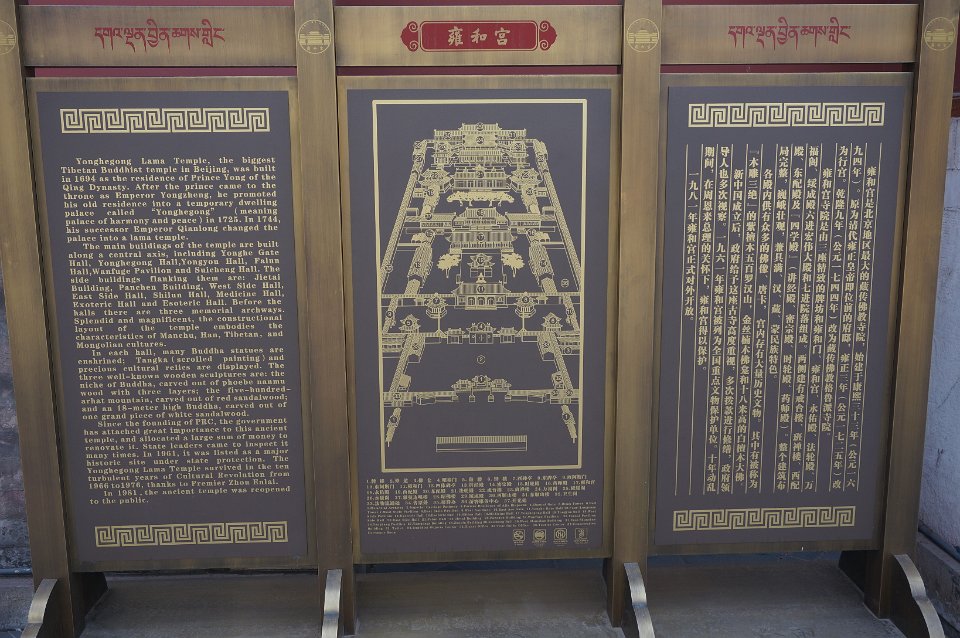 དགའ་ལྡན་བྱིན་ཆགས་གླིང
雍和宫
དགའ་ལྡན་བྱིན་ཆགས་གླིང
Yonghegong Lama Temple, the biggest
Tibetan Buddhist temple in Beijing, was built
in 1694 as the residence of Prince Yong of the
Qing Dynasty. After the prince came to the
throne as Emperor Yongzheng, he promoted
his old residence into a temporary dwelling
palace called "Yonghegong" (meaning
palace of harmony and peace) in 1725. In 1744,
his successor Emperor Qianlong changed the
palace into a lama temple.
The main buildings of the temple are built
along a central axis, including Yonghe Gate
Hall, Yonghegong Hall,Yongyou Hall, Falun
Hall,Wanfuge Pavilion and Suicheng Hall. The
side buildings flanking them are: Jietai
Building, Panchen Building, West Side Hall,
East Side Hall, Shilun Hall, Medicine Hall,
Exoteric Hall and Esoteric Hall. Before the
halls there are three memorial archways.
Splendid and magnificent, the constructional
layout of the temple embodies the
characteristics of Manchu, Han, Tibetan, and
Mongolian cultures.
In each hall, many Buddha statues are
enshrined; Tangka (scrolled painting) and
precious cultural relics are displayed. The
three well-known wooden sculptures are: the
niche of Buddha, carved out of phoebe nanmu
wood with three layers; the five-hundred-
arhat mountain, carved out of red sandalwood;
and an 18-meter high Buddha, carved out of
one grand piece of white sandalwood.
Since the founding of PRC, the government
has attached great importance to this ancient
temple, and allocated a large sum of money to
renovate it. State leaders came to inspect it
many times. In 1961, it was listed as a major
historic site under state protection. The
Yonghegong Lama Temple survived in the ten
turbulent years of Cultural Revolution from
1966 to 1976, thanks to Premier Zhou Enlai.
In 1981, the ancient temple was reopened
to the public.
雍和宫是北京地区最大的藏传佛教寺院，始建于康熙三十三年（公元一六
九四年），原为清代雍正皇帝即位前的府邸，雍正三年（公元一七二五年）改
为行宫。乾隆九年（公元一七四四年）改为藏传佛教格鲁派寺院。
雍和宫寺院是由三座精致的牌坊和雍和门、雍和宫、永佑殿、法轮殿、万
福阁、绥成殿六进宏伟大殿和七进院落组成。两侧建有戒台楼、班禅楼、西配
殿、东配殿及“四学殿”（讲经殿、密宗殿、时轮殿、药师殿）。整个建筑布
局完整，巍峨壮观，兼具满、汉、藏、蒙民族特色。
各殿内供有众多的佛像、唐卡，宫内存有大量历史文物。其中有被誉为
“木雕三绝”的紫檀木五百罗汉山、金丝楠木佛龛和十八米高的白檀木大佛。
新中国成立后，政府给予这座古寺高度重视，多次拨款进行修缮，政府领
导人也多次视察。一九六一年雍和宫被列为全国重点文物保护单位。十年动乱
期间，在周恩来总理的关怀下，雍和宫得以保护。
一九八一年雍和宫正式对外开放。